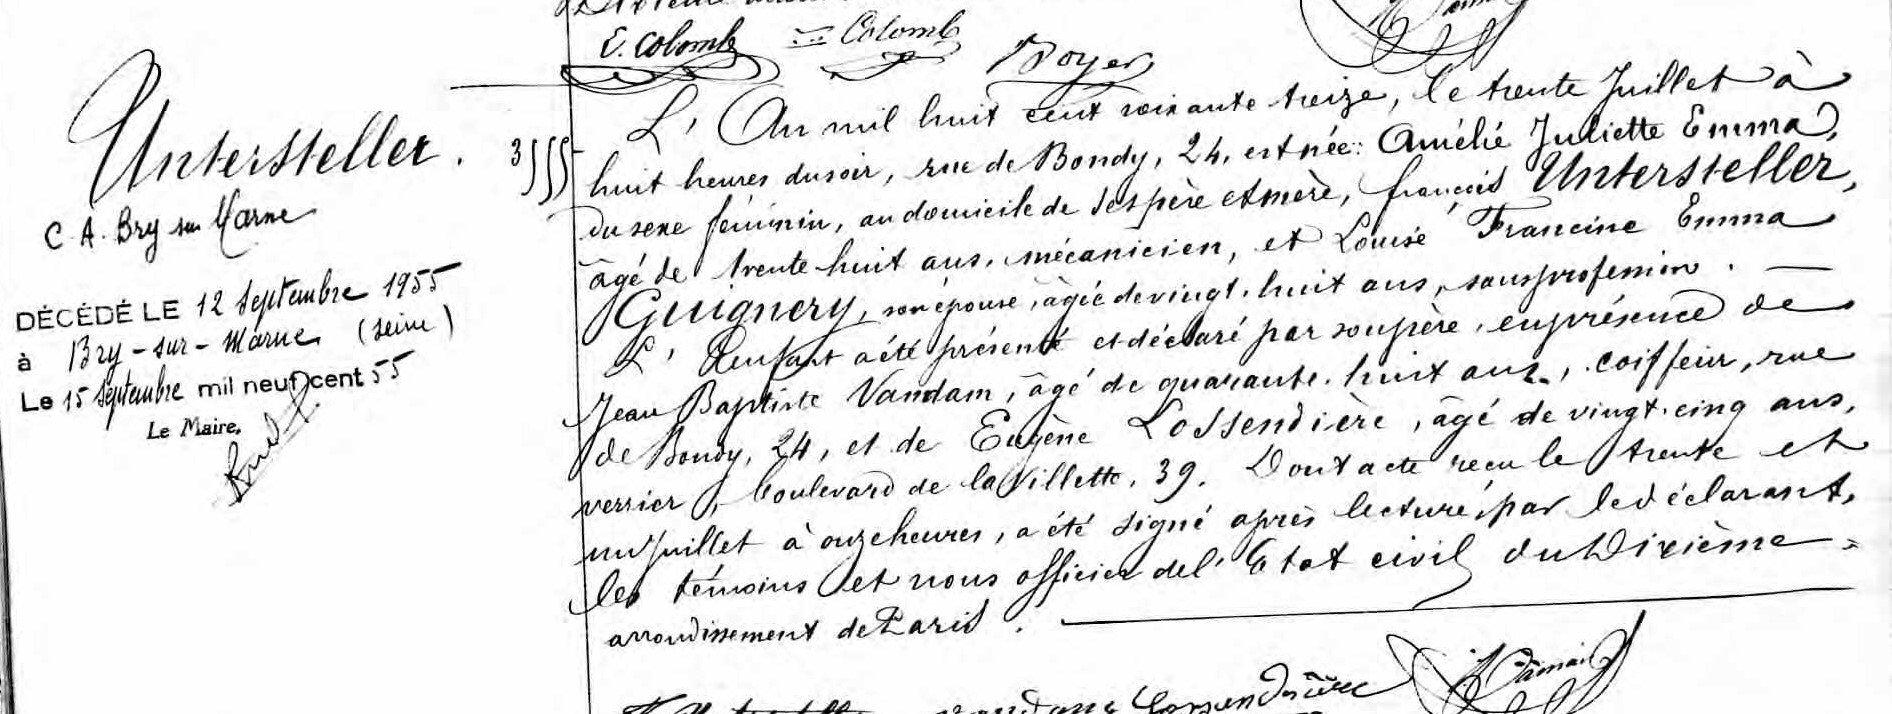 E. Colomb Colomb
Boyer
Untersteller.
C. A. Bry sur Marne
DÉCÉDÉ LE 12 Septembre 1955
à Bry-sur-Marne (Seine)
Le 15 Septembre mil neuf cent 55
Le Maire,
L'An mil huit cent soixante treize, le trente Juillet à
huit heures du soir, rue de Bondy, 24, est née: Amélie Juliette Emma,
du sexe féminin, au domicile de ses père et mère, françois Untersteller,
âgé de trente huit ans, mécanicien, et Louise Francine Emma
Guignery, son épouse, âgée de vingt-huit ans, sans profession. —
L'Enfant a été présenté et déclaré par son père, en présence de
Jean Baptiste Vandam, âgé de quarante-huit ans, coiffeur, rue
de Bondy, 24, et de Eugène Lossendière, âgé de vingt-cinq ans,
verrier, boulevard de la Villette, 39. Dont acte reçu le trente et
un Juillet à onze heures, a été signé après lecture, par le déclarant,
les témoins et nous officier de l'Etat civil du Dixième
arrondissement de Paris.